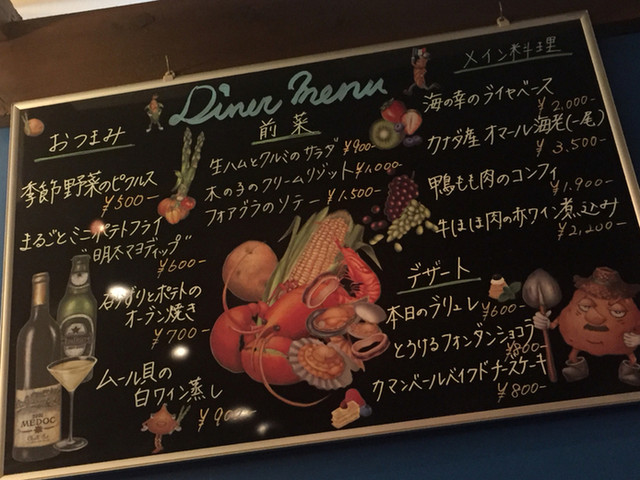 Diner menu
おつまみ
季節野菜のピクルス
¥500-
まるごとミニポテトフライ
"明太マヨディップ"
¥600-
とポテトの
オーブン焼き
¥700-
ムール貝の
白ワイン蒸し
¥900-
前菜
生ハムとクルミのサラダ ¥900-
木の子のクリームリゾット ¥1,000-
フォアグラのソテー ¥1,500-
メイン料理
海の幸のブイヤベース
¥2,000-
カナダ産 オマール海老(一尾)
¥3,500-
鴨もも肉のコンフィ
¥1,900-
牛ほほ肉の赤ワイン煮込み
¥2,200-
デザート
本日のブリュレ ¥600-
とろけるフォンダンショコラ
¥800-
カマンベールベイクドチーズケーキ
¥800-
MEDOC